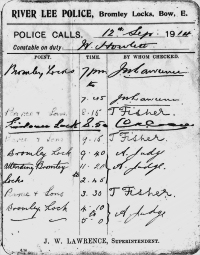 RIVER LEE POLICE, Bromley Locks, Bow, E.
POLICE CALLS. 12th Sep. 1914
Constable on duty W. Howlett
POINT. TIME. BY WHOM CHECKED.
Bromley Locks 7 pm JW Lawrence
to
7.45 JW Lawrence
8.15 T Fisher
Lock 8.50
9.15 T Fisher
Bromley Lock 9.40 A Judge
Attending Bromley A Judge.
Locks 2.45
& Sons 3.30 T Fisher
Bromley Lock 4.10 A Judge
to
J. W. LAWRENCE, SUPERINTENDENT.